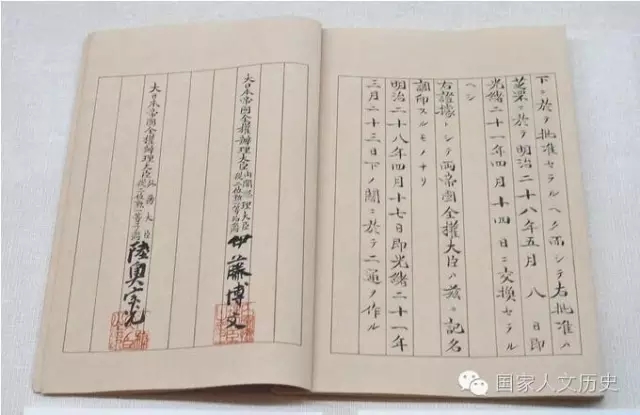 下ニ於テ批准セラルヘク而シテ右批准ハ
芝罘ニ於テ明治二十八年五月八日即
光緒二十一年四月十四日ニ交換セラル
ヘシ
右證據トシテ兩帝國全權大臣ハ茲ニ記名
調印スルモノナリ
明治二十八年四月十七日即光緒二十一年
三月二十三日下ノ關ニ於テ二通ヲ作ル
大日本帝國全權辦理大臣內閣總理大臣
伊藤博文
大日本帝國全權辦理大臣外務大臣
陸奥宗光
国家人文历史